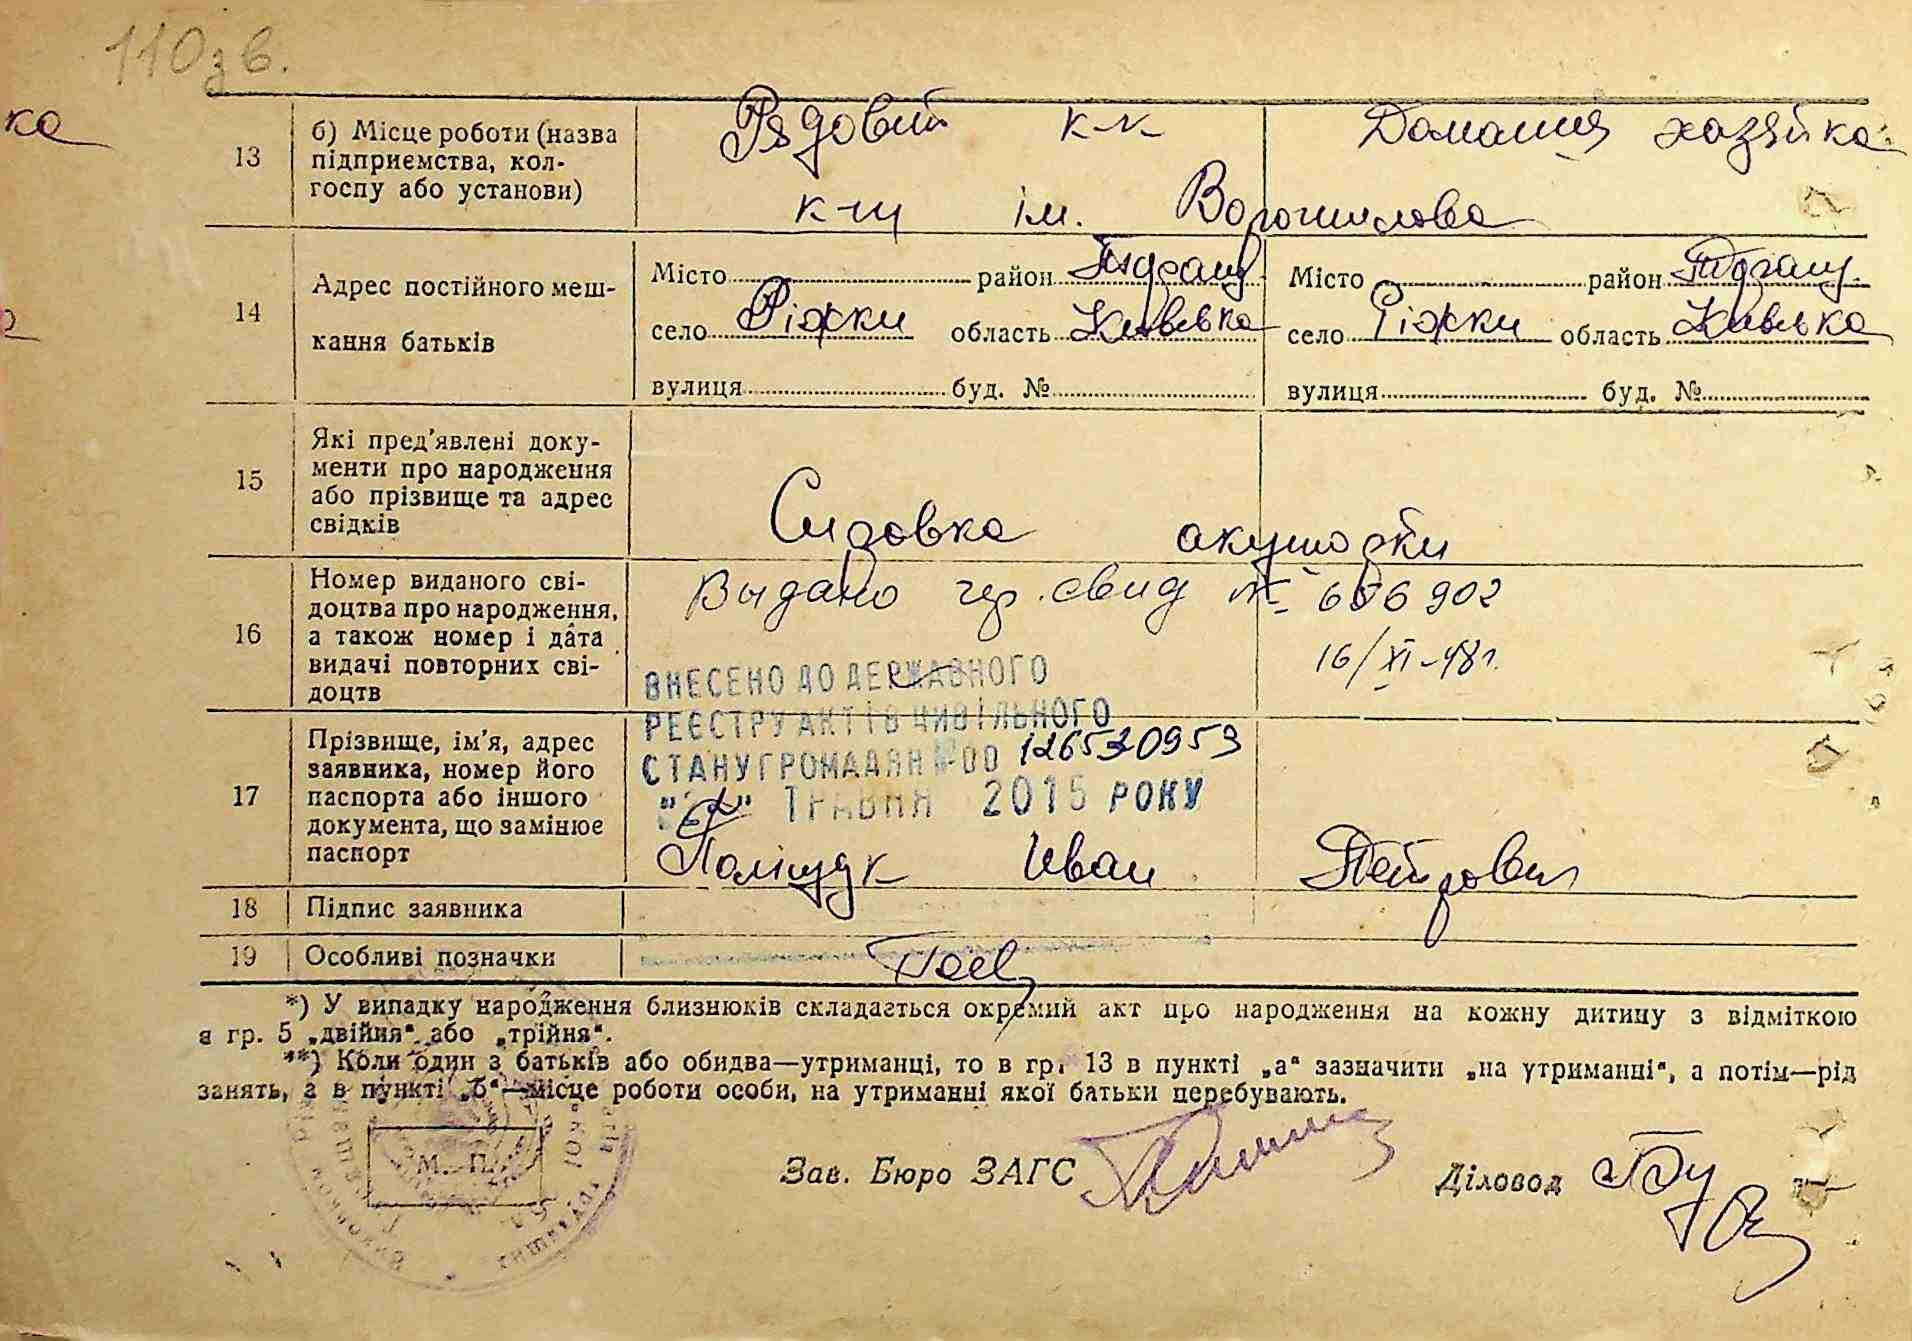 110зв.
ка
13 б) Місце роботи (назва підприємства, кол-
госпу або установи)
Рядовий к-к Домашня хазяйка
к-пу ім. Ворошилова
14 Адрес постійного меш-
кання батьків
Місто район Підгаєц. Місто район Підгаєц.
село Ріжки область Київська село Ріжки область Київська
вулиця буд. № вулиця буд. №
15 Які пред'явлені доку-
менти про народження
або прізвище та адрес
свідків
акушорки
16 Номер виданого сві-
доцтва про народження,
а також номер і дата
видачі повторних сві-
доцтв
Выдано свид № 606902
16/XI-48г.
ВНЕСЕНО ДО ДЕРЖАВНОГО
РЕЄСТРУ АКТІВ ЦИВІЛЬНОГО
СТАНУ ГРОМАДЯН №00126520959
ТРАВНЯ 2015 РОКУ
17 Прізвище, ім'я, адрес
заявника, номер його
паспорта або іншого
документа, що замінює
паспорт
Поліщук Иван Петрович
18 Підпис заявника
19 Особливі позначки
*) У випадку народження близнюків складається окремий акт про народження на кожну дитину з відміткою
в гр. 5 „двійня“ або „трійня“.
**) Коли один з батьків або обидва—утриманці, то в гр. 13 в пункті „а“ зазначити „на утриманні“, а потім—рід
занять, а в пункті „б“—місце роботи особи, на утриманні якої батьки перебувають.
М. П.
Зав. Бюро ЗАГС Діловод